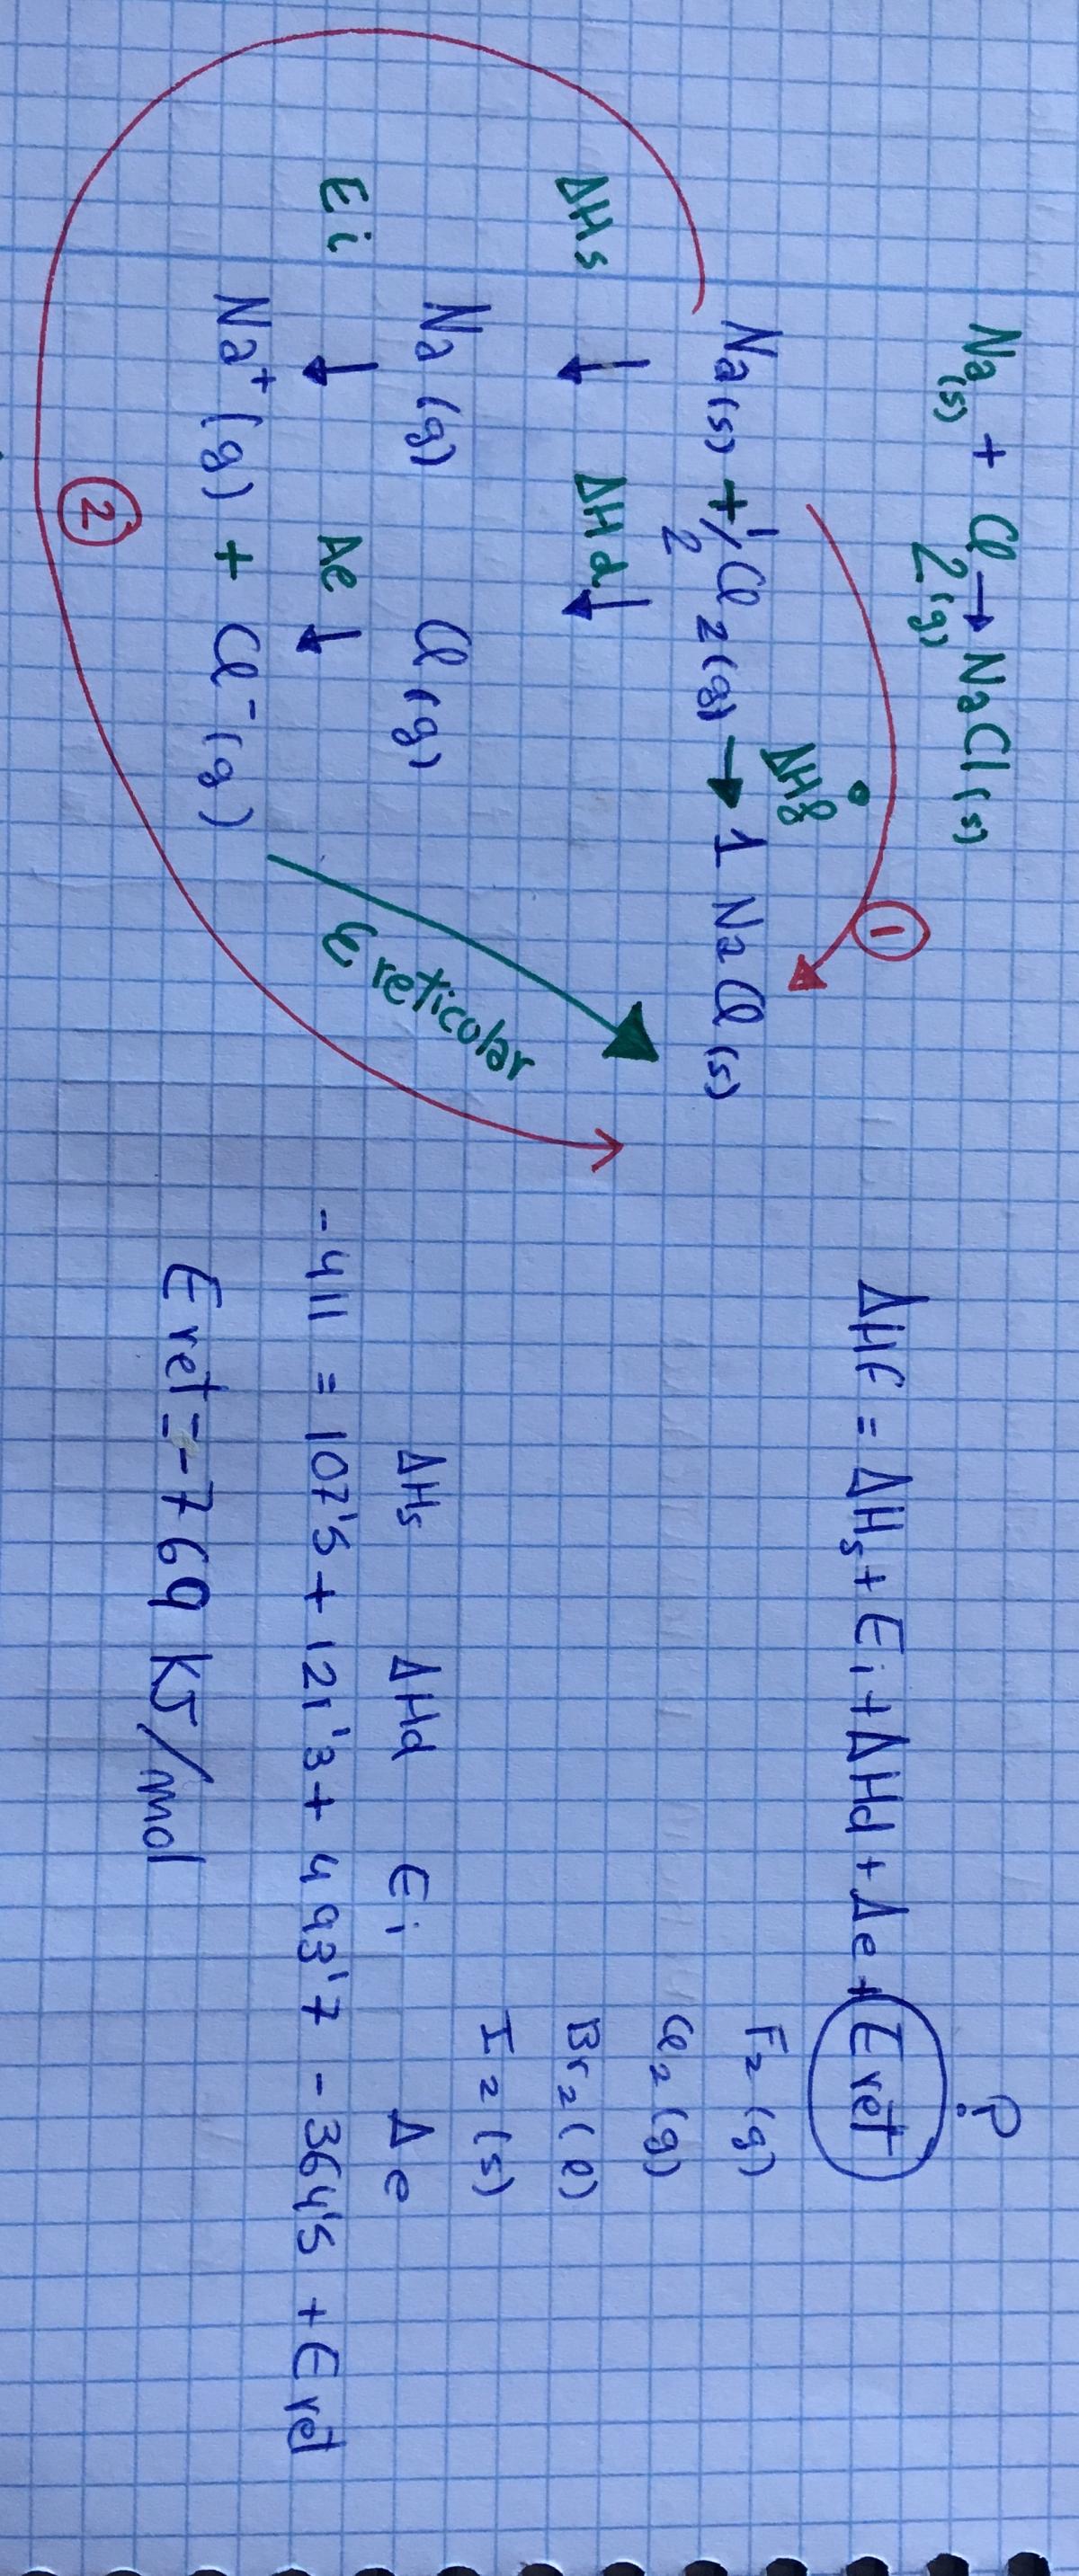 Na(s) + Cl2(g) → NaCl(s)
①
ΔHf°
Na(s) + 1/2 Cl2(g) → 1 NaCl(s)
ΔHs ↓ ΔHd ↓
Na(g) Cl(g)
Ei ↓ Ae ↓
Na⁺(g) + Cl⁻(g)
E reticolar
②
?
ΔHf = ΔHs + Ei + ΔHd + Ae + Eret
F2(g)
Cl2(g)
Br2(l)
I2(s)
ΔHs ΔHd Ei Ae
-411 = 107'5 + 121'3 + 493'7 - 364'5 + Eret
Eret = -769 kJ/mol